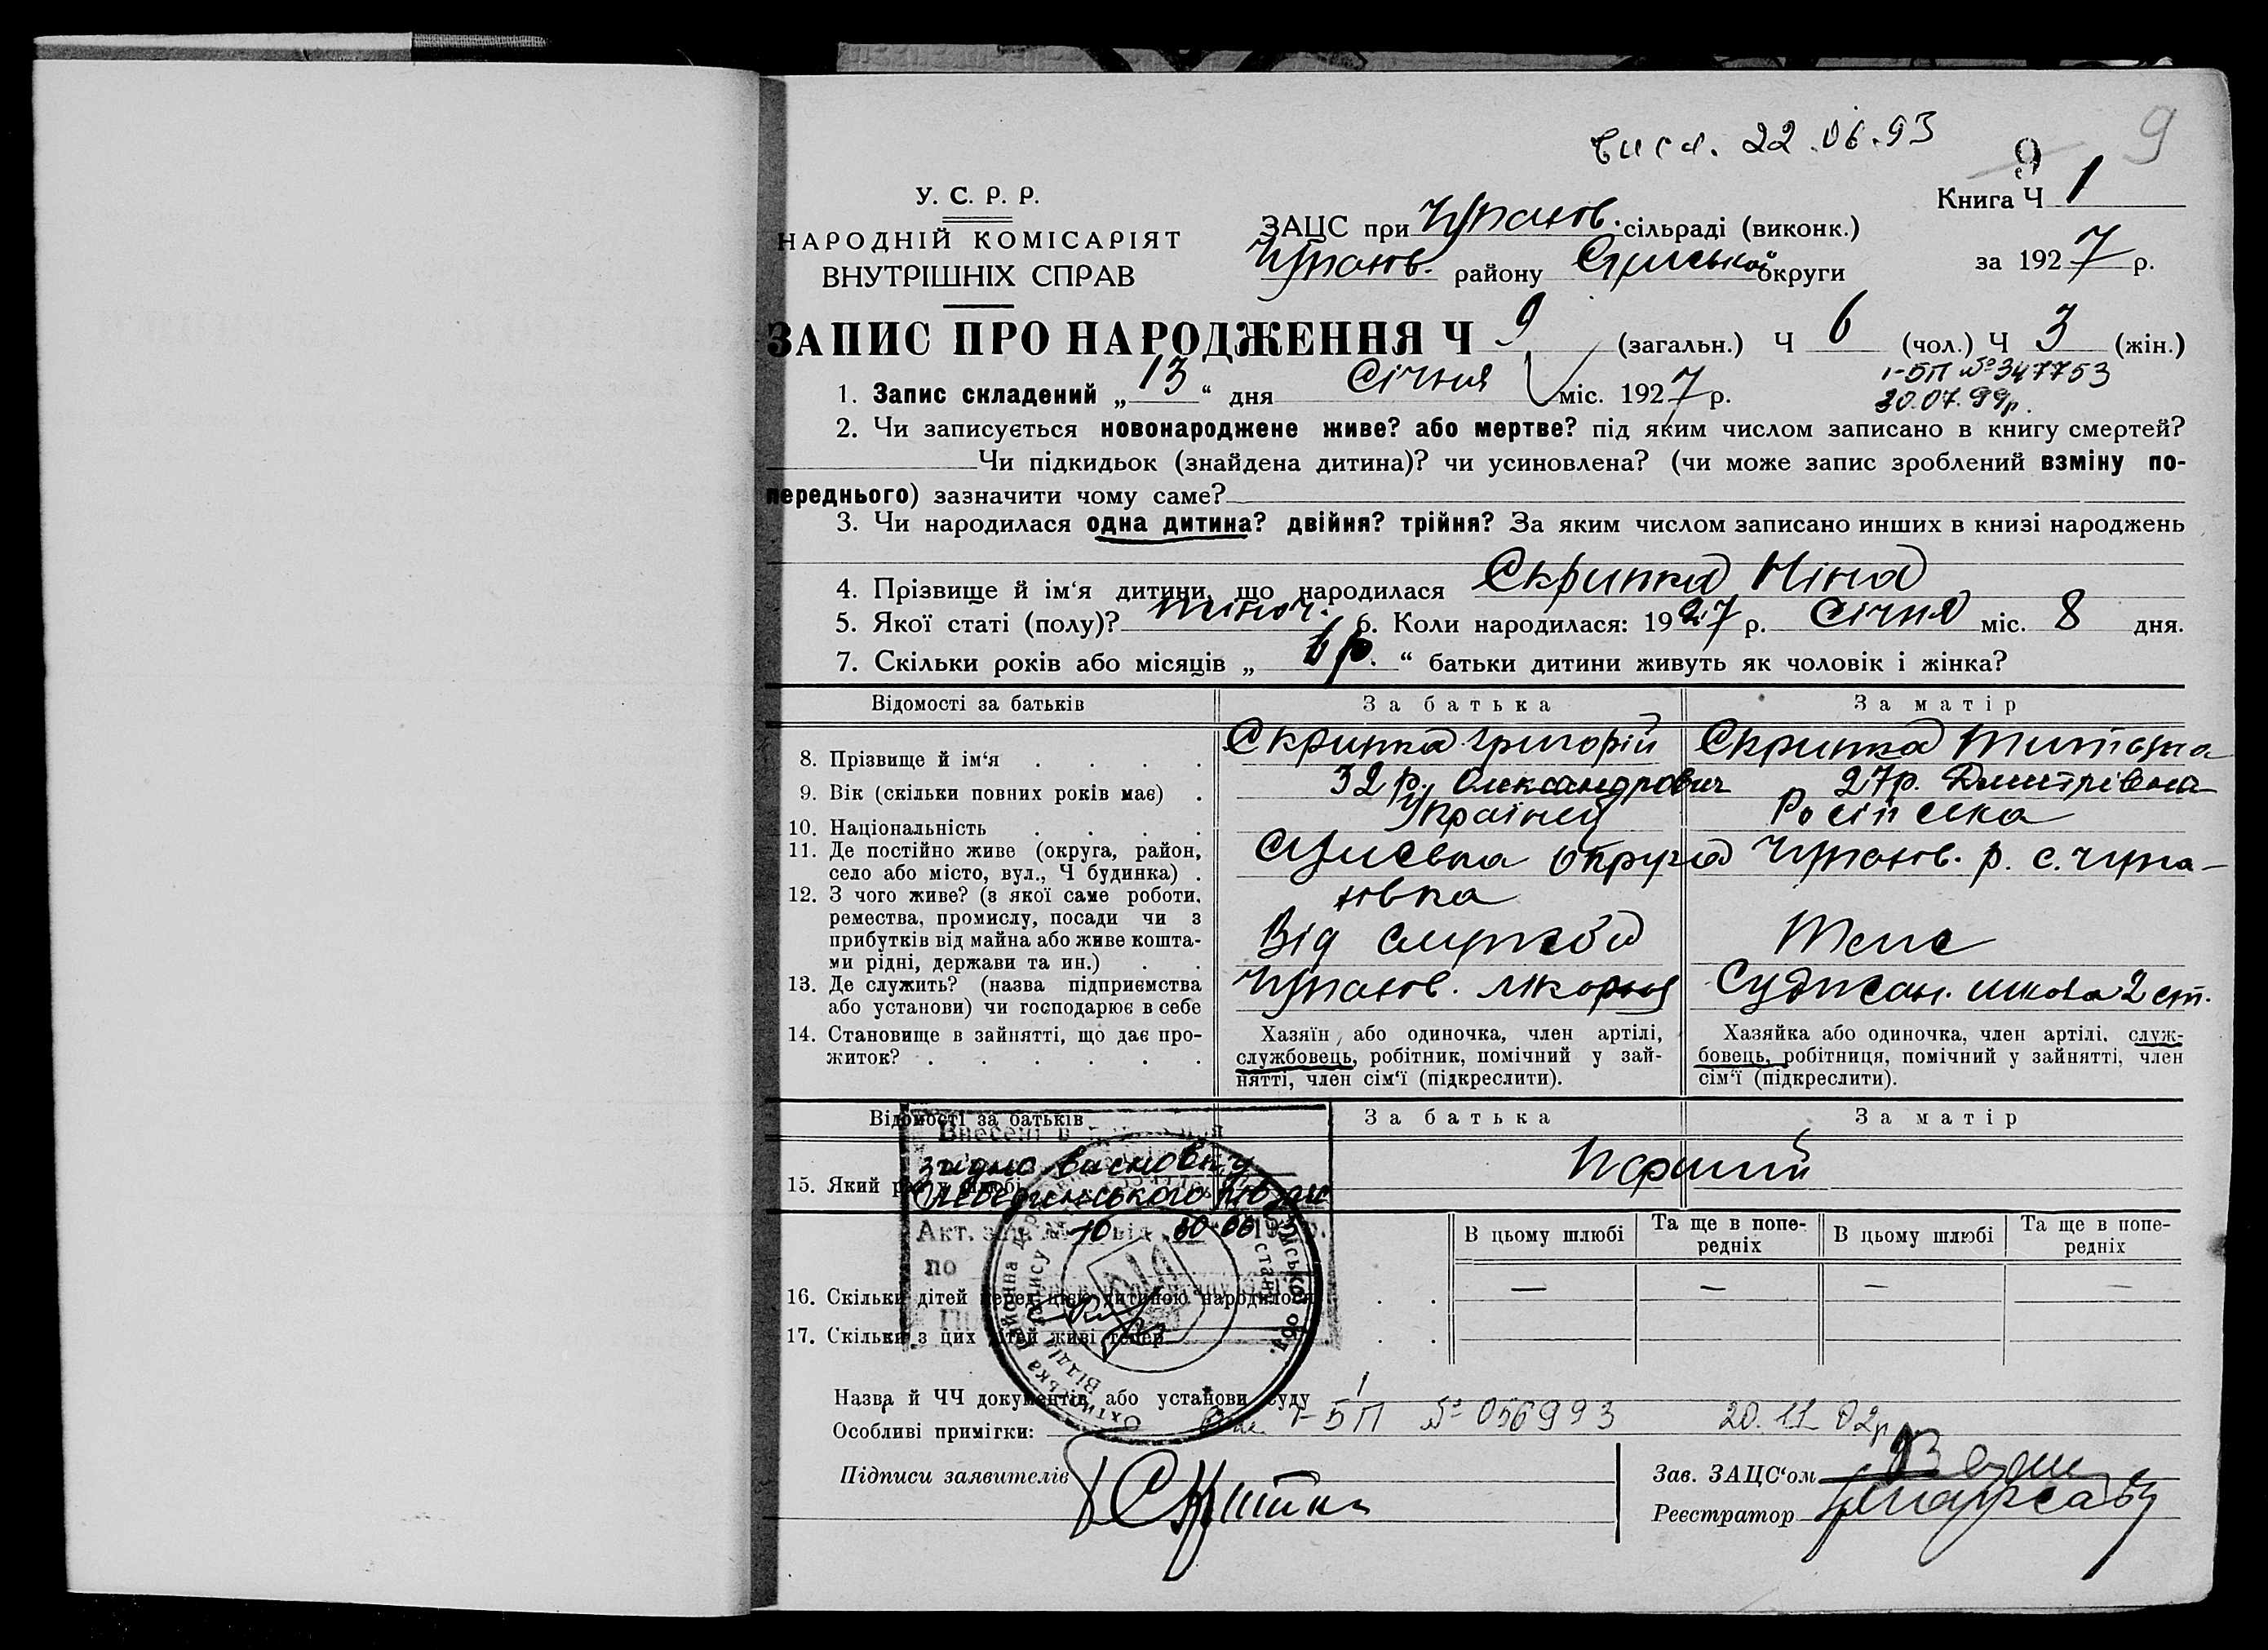 вися. 22.06.93
9 9
У. С. Р. Р.
Книга Ч 1
НАРОДНІЙ КОМІСАРІЯТ
ВНУТРІШНІХ СПРАВ
ЗАЦС при Чупахів. сільраді (виконк.)
Чупахів. району Сумської округи
за 1927 р.
ЗАПИС ПРО НАРОДЖЕННЯ Ч 9 (загальн.) Ч 6 (чол.) Ч 3 (жін.)
1. Запис складений „13“ дня Січня міс. 1927 р.
І-БП № 347753
30.07.99р.
2. Чи записується новонароджене живе? або мертве? під яким числом записано в книгу смертей?
Чи підкидьок (знайдена дитина)? чи усиновлена? (чи може запис зроблений взміну по-
переднього) зазначити чому саме?
3. Чи народилася одна дитина? двійня? трійня? За яким числом записано инших в книзі народжень
4. Прізвище й ім‘я дитини, що народилася Скрипка Ніна
5. Якої статі (полу)? жіноч. 6. Коли народилася: 1927 р. Січня міс. 8 дня.
7. Скільки років або місяців „ 6 р. “ батьки дитини живуть як чоловік і жінка?
Відомості за батьків За батька За матір
8. Прізвище й ім‘я . . . . Скрипка Григорій Скрипка
9. Вік (скільки повних років має) . 32 р. Олександрович 27р. Дмитрівна
10. Національність . . . . Українец Росіянка
11. Де постійно живе (округа, район,
село або місто, вул., Ч будинка) .
Сумська округа Чупахів. р. с. Чупа-
хівка
12. З чого живе? (з якої саме роботи,
ремества, промислу, посади чи з
прибутків від майна або живе кошта-
ми рідні, держави та ин.) . .
Від служби Теж
13. Де служить? (назва підприємства
або установи) чи господарює в себе
Чупахів. лікарня Суджан. школа 2 ст.
14. Становище в зайнятті, що дає про-
житок? . . . . . .
Хазяїн, або одиночка, член артілі,
службовець, робітник, помічний у зай-
нятті, член сім‘ї (підкреслити).
Хазяйка або одиночка, член артілі, служ-
бовець, робітниця, помічний у зайнятті, член
сім‘ї (підкреслити).
Відомості за батьків За батька За матір
Внесені в
згідно висновку
Лебединського
15. Який раз у шлюбі
Перший
Акт. зап. № 10 від
по
В цьому шлюбі Та ще в попе-
редніх В цьому шлюбі Та ще в попе-
редніх
16. Скільки дітей перед цією дитиною народилося . . — — — —
17. Скільки з цих дітей живі тепер .
Назва й ЧЧ документів або установи суду
Особливі примітки: І-БП № 056993 20.11 02р
Підписи заявителів
Зав. ЗАЦС‘ом
Реєстратор